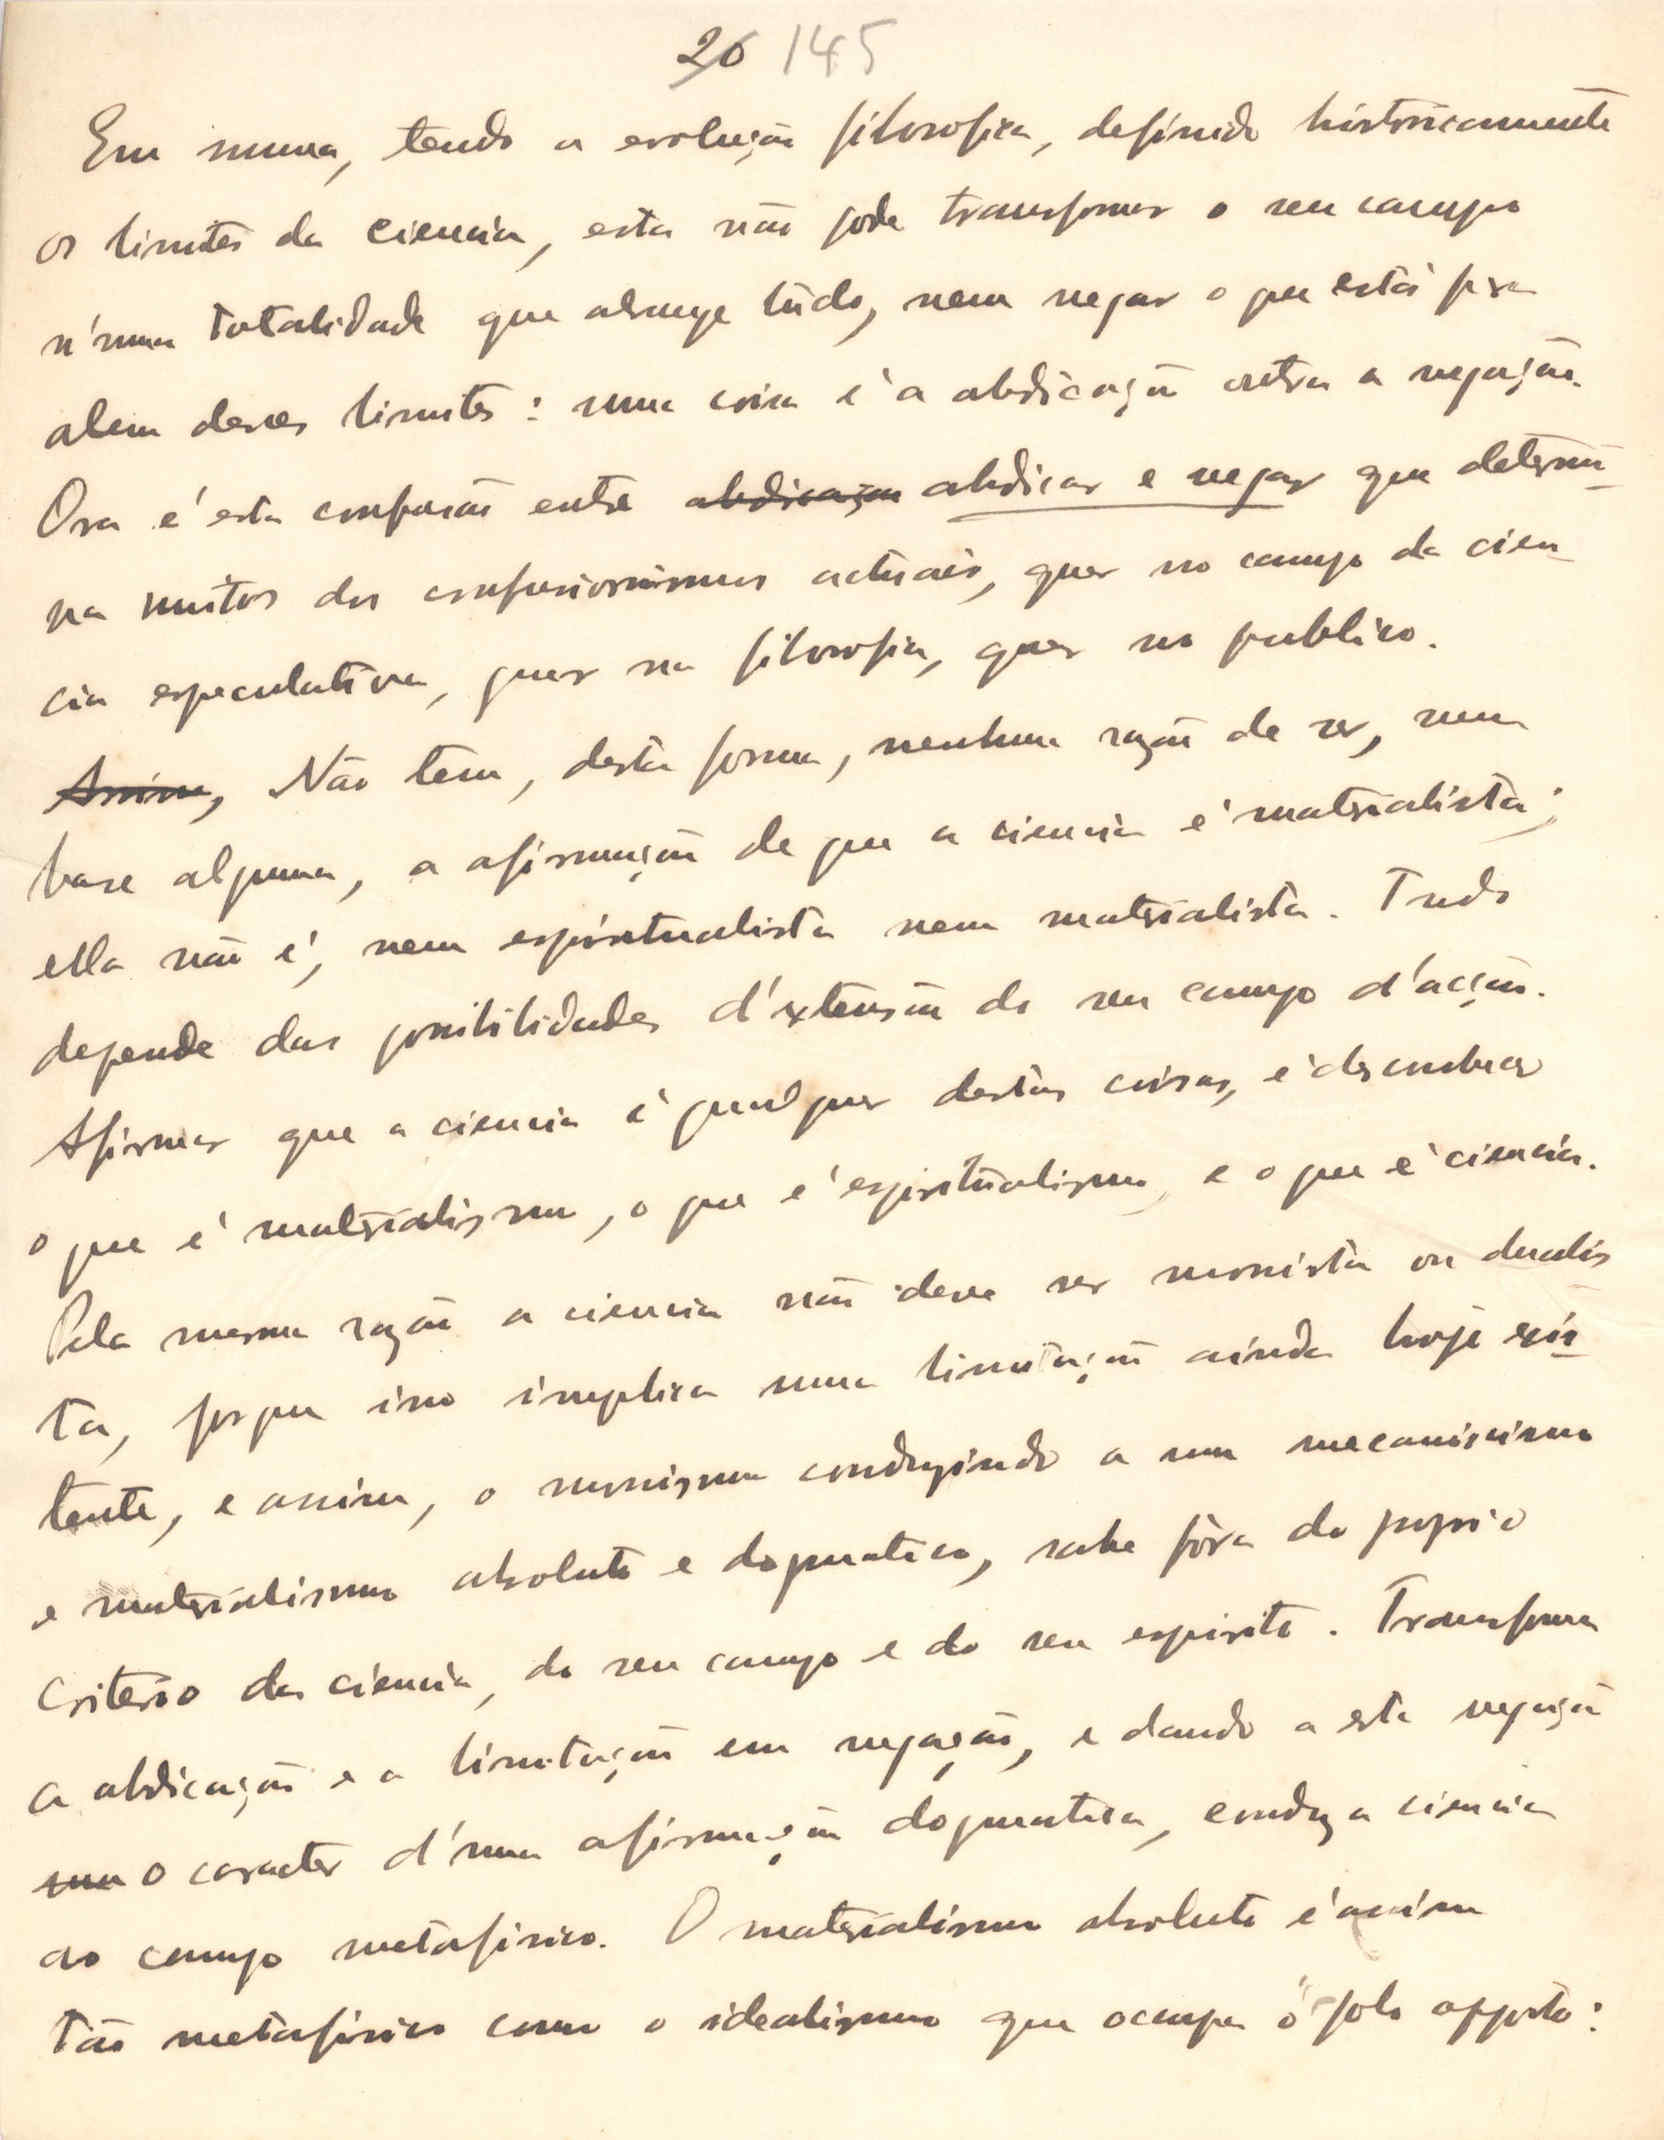 26 145
Em suma, tendo a evolução filosofica, definido historicamente
os limites da ciencia, esta não pode transformar o seu campo
n'uma totalidade que abrange tudo, nem negar o que está para
alem desses limites: uma coisa é a abdicação outra a negação.
Ora é esta confusão entre abdicação abdicar e negar que determi-
na muitos dos confusionismos actuais, quer no campo da cien-
cia especulativa, quer na filosofia, quer no publico.
Assim, Não tem, desta forma, nenhuma razão de ser, nem
base alguma, a afirmação de que a ciencia é materialista;
ella não é, nem espiritualista nem materialista. Tudo
depende das possibilidades d'extensão do seu campo d'acção.
Afirmar que a ciencia é qualquer destas coisas, é desconhecer
o que é materialismo, o que é espiritualismo, e o que é ciencia.
Pela mesma razão a ciencia não deve ser monista ou dualis
ta, porque isso implica uma limitação ainda hoje exis-
tente, e assim, o monismo conduzindo a um mecanicismo
e materialismo absoluto e dogmatico, sahe fóra do proprio
criterio da ciencia, do seu campo e do seu espirito. Transforma
a abdicação e a limitação em negação, e dando a esta negação
um o caracter d'uma afirmação dogmatica, conduz a ciencia
ao campo metafisico. O materialismo absoluto é assim
tão metafisico como o idealismo que ocupa o polo opposto: